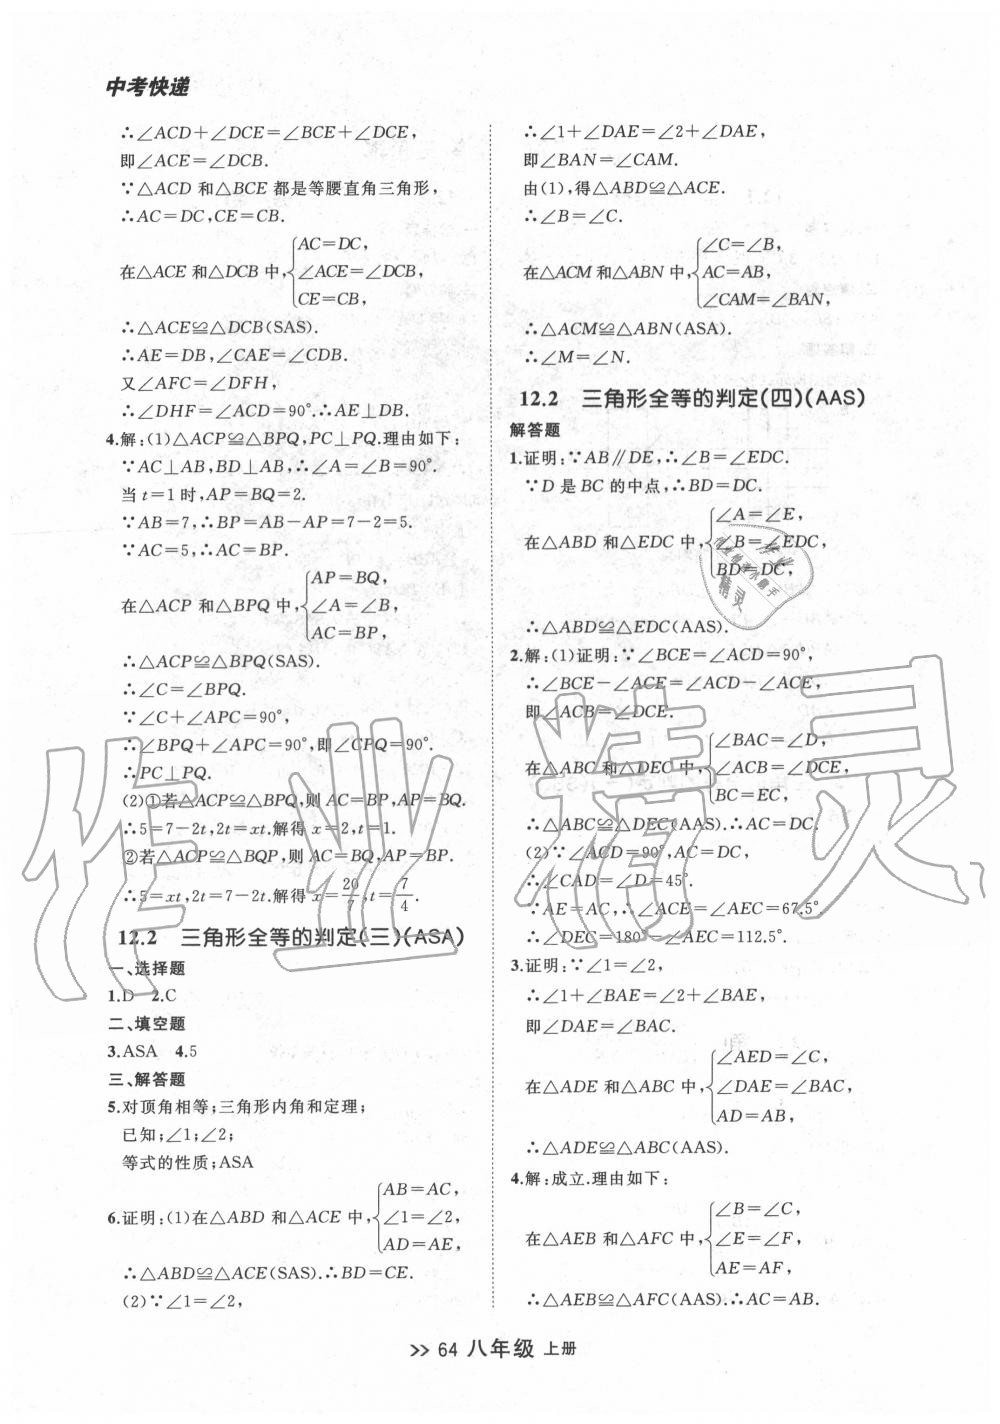 中考快递
∴∠ACD+∠DCE=∠BCE+∠DCE,
即∠ACE=∠DCB.
∵△ACD 和△BCE 都是等腰直角三角形,
∴AC=DC,CE=CB.
在△ACE 和△DCB 中,{AC=DC,
∠ACE=∠DCB,
CE=CB,
∴△ACE≌△DCB(SAS).
∴AE=DB,∠CAE=∠CDB.
又∠AFC=∠DFH,
∴∠DHF=∠ACD=90°.∴AE⊥DB.
4.解:(1)△ACP≌△BPQ,PC⊥PQ.理由如下:
∵AC⊥AB,BD⊥AB,∴∠A=∠B=90°.
当 t=1 时,AP=BQ=2.
∵AB=7,∴BP=AB-AP=7-2=5.
∵AC=5,∴AC=BP.
在△ACP 和△BPQ 中,{AP=BQ,
∠A=∠B,
AC=BP,
∴△ACP≌△BPQ(SAS).
∴∠C=∠BPQ.
∵∠C+∠APC=90°,
∴∠BPQ+∠APC=90°,即∠CPQ=90°.
∴PC⊥PQ.
(2)①若△ACP≌△BPQ,则 AC=BP,AP=BQ.
∴5=7-2t,2t=xt.解得 x=2,t=1.
②若△ACP≌△BQP,则 AC=BQ,AP=BP.
∴5=xt,2t=7-2t.解得 x=20/7,t=7/4.
12.2 三角形全等的判定(三)(ASA)
一、选择题
1.D 2.C
二、填空题
3.ASA 4.5
三、解答题
5.对顶角相等;三角形内角和定理;
已知;∠1;∠2;
等式的性质;ASA
6.证明:(1)在△ABD 和△ACE 中,{AB=AC,
∠1=∠2,
AD=AE,
∴△ABD≌△ACE(SAS).∴BD=CE.
(2)∵∠1=∠2,
∴∠1+∠DAE=∠2+∠DAE,
即∠BAN=∠CAM.
由(1),得△ABD≌△ACE.
∴∠B=∠C.
在△ACM 和△ABN 中,{∠C=∠B,
AC=AB,
∠CAM=∠BAN,
∴△ACM≌△ABN(ASA).
∴∠M=∠N.
12.2 三角形全等的判定(四)(AAS)
解答题
1.证明:∵AB∥DE,∴∠B=∠EDC.
∵D 是 BC 的中点,∴BD=DC.
在△ABD 和△EDC 中,{∠A=∠E,
∠B=∠EDC,
BD=DC,
∴△ABD≌△EDC(AAS).
2.解:(1)证明:∵∠BCE=∠ACD=90°,
∴∠BCE-∠ACE=∠ACD-∠ACE,
即∠ACB=∠DCE.
在△ABC 和△DEC 中,{∠BAC=∠D,
∠ACB=∠DCE,
BC=EC,
∴△ABC≌△DEC(AAS).∴AC=DC.
(2)∵∠ACD=90°,AC=DC,
∴∠CAD=∠D=45°.
∵AE=AC,∴∠ACE=∠AEC=67.5°.
∴∠DEC=180°-∠AEC=112.5°.
3.证明:∵∠1=∠2,
∴∠1+∠BAE=∠2+∠BAE,
即∠DAE=∠BAC.
在△ADE 和△ABC 中,{∠AED=∠C,
∠DAE=∠BAC,
AD=AB,
∴△ADE≌△ABC(AAS).
4.解:成立.理由如下:
在△AEB 和△AFC 中,{∠B=∠C,
∠E=∠F,
AE=AF,
∴△AEB≌△AFC(AAS).∴AC=AB.
>> 64 八年级 上册
作业精灵